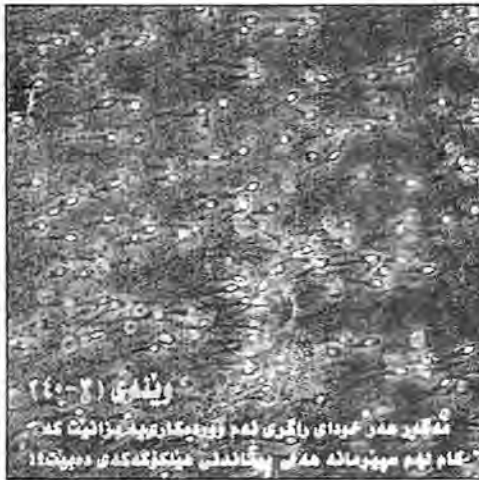 وێنەی (٣-٢٤٠)
مەگەر هەر خودای ڕاگری ئەم وردەکاریە بزانێت کە
کام لەم سپێرمانە هەلی پیتاندنی هێلکۆکەکەی دەبێت؟!